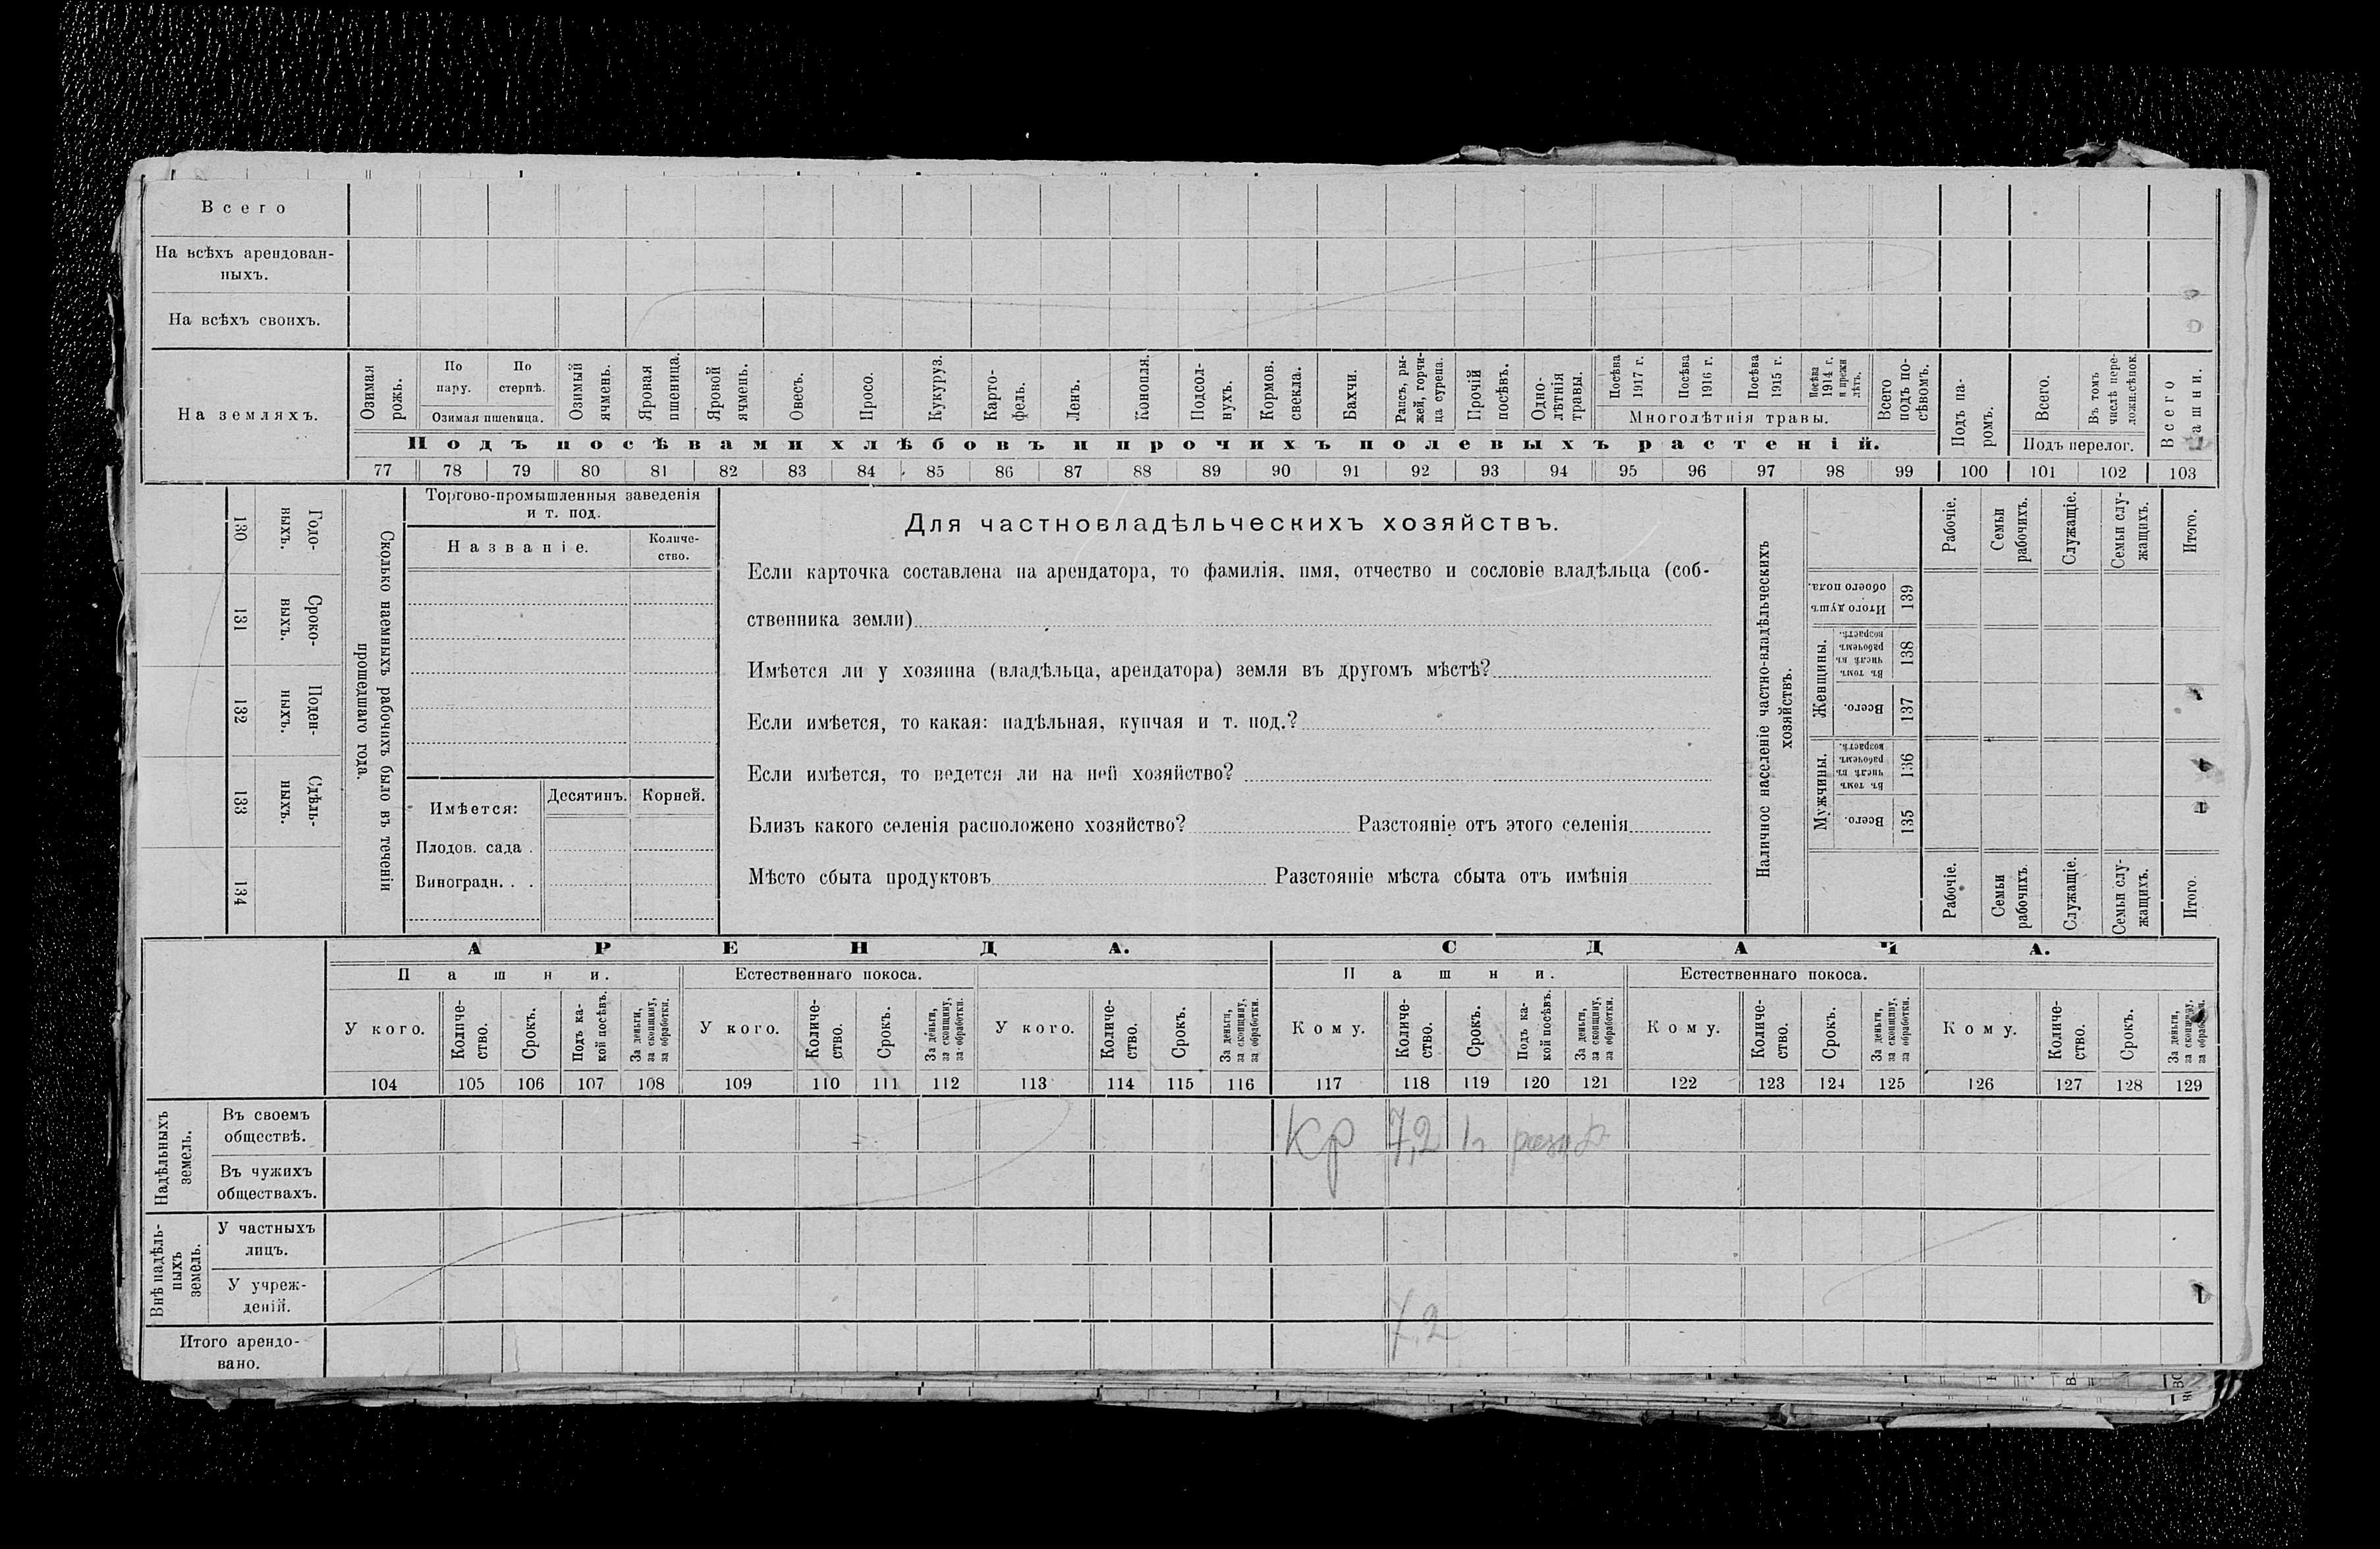 Всего
На всѣхъ арендован-
ныхъ.
На всѣхъ своихъ.
На земляхъ.
Озимая рожь.
По пару.
По стернѣ.
Озимая пшеница.
Озимый ячмень.
Яровая пшеница.
Яровой ячмень.
Овесъ.
Просо.
Кукуруз.
Карто-
фель.
Ленъ.
Конопля.
Подсол-
нухъ.
Кормов. свекла.
Бахчи.
Рапсъ, ры-
жей, горчи-
ца сурепа.
Прочій посѣвъ.
Одно-
лѣтнія травы.
Посѣва 1917 г.
Посѣва 1916 г.
Посѣва 1915 г.
Посѣва 1914 г. и прежн лѣтъ.
Многолѣтнія травы.
Всего подъ по-
сѣвомъ.
Подъ посѣвами хлѣбовъ и прочихъ полевыхъ растеній.
Подъ па-
ромъ.
Всего.
Въ томъ числѣ пере-
ложн.сѣнок.
Подъ перелог.
Всего пашни.
77 78 79 80 81 82 83 84 85 86 87 88 89 90 91 92 93 94 95 96 97 98 99 100 101 102 103
Годо-
выхъ.
130
Сроко-
выхъ.
131
Поден-
ныхъ.
132
Сдѣль-
ныхъ.
133
134
Сколько наемныхъ рабочихъ было въ теченіи
прошедшаго года.
Торгово-промышленныя заведенія
и т. под.
Названіе.
Количе-
ство.
Имѣется:
Десятинъ.
Корней.
Плодов. сада .
Виноградн. . .
Для частновладѣльческихъ хозяйствъ.
Если карточка составлена на арендатора, то фамилія, имя, отчество и сословіе владѣльца (соб-
ственника земли)
Имѣется ли у хозяина (владѣльца, арендатора) земля въ другомъ мѣстѣ?
Если имѣется, то какая: надѣльная, купчая и т. под.?
Если имѣется, то ведется ли на ней хозяйство?
Близъ какого селенія расположено хозяйство? Разстояніе отъ этого селенія
Мѣсто сбыта продуктовъ Разстояніе мѣста сбыта отъ имѣнія
Наличное населеніе частно-владѣльческихъ
хозяйствъ.
Рабочіе.
Семьи рабочихъ.
Служащіе.
Семьи слу-
жащихъ.
Итого.
Итого душъ обоего пола.
139
Женщины.
Въ томъ числѣ въ рабочемъ возрастѣ.
138
Всего.
137
Мужчины.
Въ томъ числѣ въ рабочемъ возрастѣ.
136
Всего.
135
Рабочіе.
Семьи рабочихъ.
Служащіе.
Семьи слу-
жащихъ.
Итого.
АРЕНДА.
СДАЧА.
Пашни.
Естественнаго покоса.
Пашни.
Естественнаго покоса.
У кого.
Количе-
ство.
Срокъ.
Подъ ка-
кой посѣвъ.
За деньги, за скопщину, за обработки.
У кого.
Количе-
ство.
Срокъ.
За деньги, за скопщину, за обработки.
У кого.
Количе-
ство.
Срокъ.
За деньги, за скопщину, за обработки.
Кому.
Количе-
ство.
Срокъ.
Подъ ка-
кой посѣвъ.
За деньги, за скопщину, за обработки.
Кому.
Количе-
ство.
Срокъ.
За деньги, за скопщину, за обработки.
Кому.
Количе-
ство.
Срокъ.
За деньги, за скопщину, за обработки.
104 105 106 107 108 109 110 111 112 113 114 115 116 117 118 119 120 121 122 123 124 125 126 127 128 129
Надѣльныхъ
земель.
Въ своемъ
обществѣ.
Кр 7,2
Въ чужихъ
обществахъ.
Внѣ надѣль-
ныхъ
земель.
У частныхъ
лицъ.
У учреж-
деній.
7,2
Итого арендо-
вано.